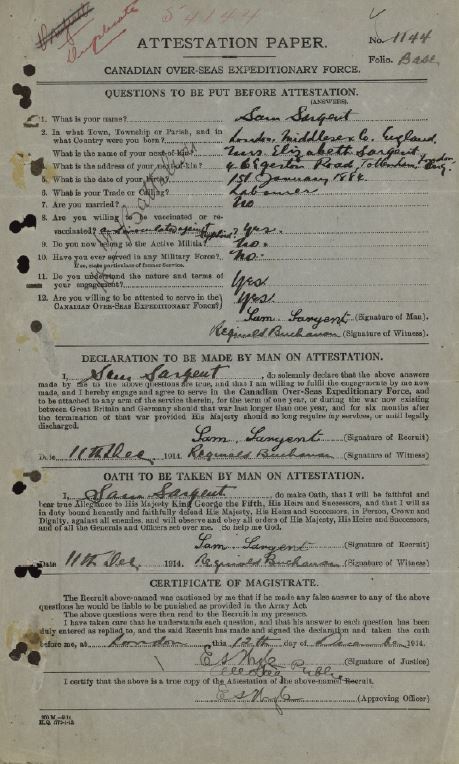 Duplicate
54144
ATTESTATION PAPER.
No. 1144
Folio. Base
CANADIAN OVER-SEAS EXPEDITIONARY FORCE.
QUESTIONS TO BE PUT BEFORE ATTESTATION.
(ANSWERS)
1. What is your name? Sam Sargent
2. In what Town, Township or Parish, and in what Country were you born? London, Middlesex Co. England.
3. What is the name of your next-of-kin? Mrs. Elizabeth Sargent,
4. What is the address of your next-of-kin? Road, Tottenham, London Eng.
5. What is the date of your birth? 1st January 1884.
6. What is your Trade or Calling? Labourer
7. Are you married? No
8. Are you willing to be vaccinated or re-
vaccinated? Yes.
9. Do you now belong to the Active Militia? No.
10. Have you ever served in any Military Force? No.
If so, state particulars of former Service.
11. Do you understand the nature and terms of
your engagement? Yes
12. Are you willing to be attested to serve in the
CANADIAN OVER-SEAS EXPEDITIONARY FORCE? Yes
Sam Sargent (Signature of Man).
Reginald Buchanan (Signature of Witness).
DECLARATION TO BE MADE BY MAN ON ATTESTATION.
I, Sam Sargent, do solemnly declare that the above answers
made by me to the above questions are true, and that I am willing to fulfil the engagements by me now
made, and I hereby engage and agree to serve in the Canadian Over-Seas Expeditionary Force, and
to be attached to any arm of the service therein, for the term of one year, or during the war now existing
between Great Britain and Germany should that war last longer than one year, and for six months after
the termination of that war provided His Majesty should so long require my services, or until legally
discharged.
Sam Sargent (Signature of Recruit)
Date 11th Dec. 1914. Reginald Buchanan (Signature of Witness)
OATH TO BE TAKEN BY MAN ON ATTESTATION.
I, Sam Sargent, do make Oath, that I will be faithful and
bear true Allegiance to His Majesty King George the Fifth, His Heirs and Successors, and that I will as
in duty bound honestly and faithfully defend His Majesty, His Heirs and Successors, in Person, Crown and
Dignity, against all enemies, and will observe and obey all orders of His Majesty, His Heirs and Successors,
and of all the Generals and Officers set over me. So help me God.
Sam Sargent (Signature of Recruit)
Date 11th Dec. 1914. Reginald Buchanan (Signature of Witness)
CERTIFICATE OF MAGISTRATE.
The Recruit above-named was cautioned by me that if he made any false answer to any of the above
questions he would be liable to be punished as provided in the Army Act.
The above questions were then read to the Recruit in my presence.
I have taken care that he understands each question, and that his answer to each question has been
duly entered as replied to, and the said Recruit has made and signed the declaration and taken the oath
before me, at London this 12th day of December 1914.
(Signature of Justice)
Public
I certify that the above is a true copy of the Attestation of the above-named Recruit.
(Approving Officer)